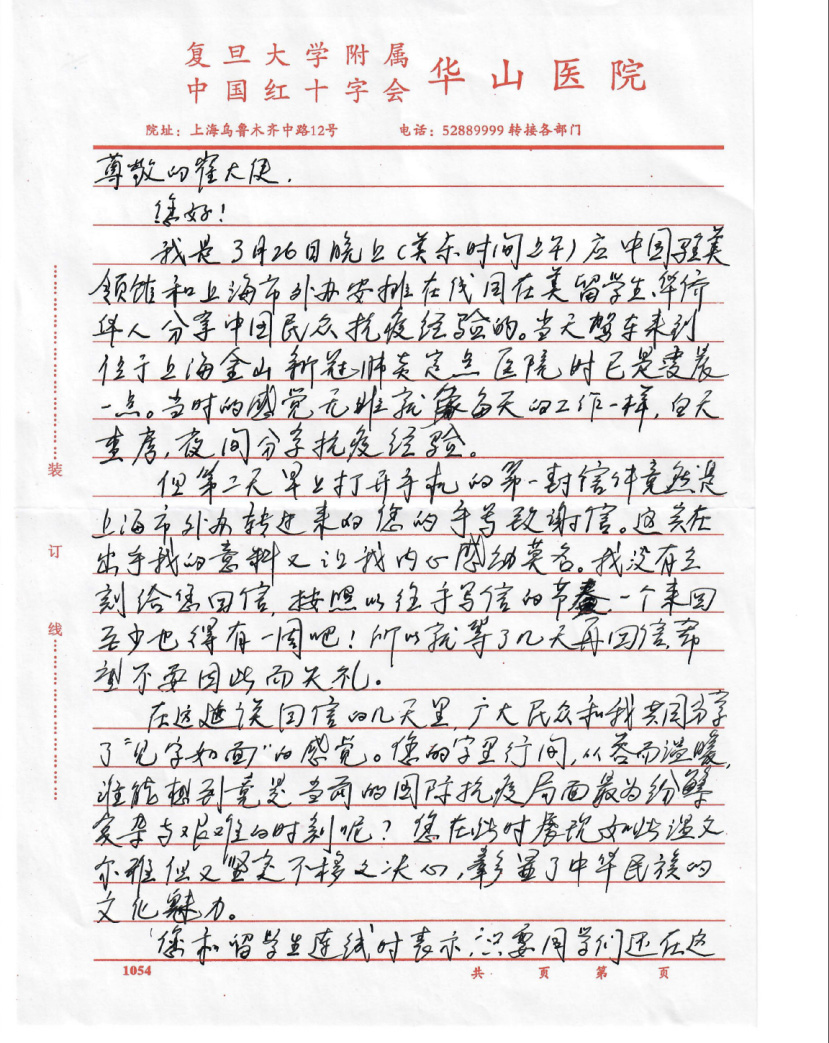 复旦大学附属
中国红十字会 华山医院
院址：上海乌鲁木齐中路12号 电话：52889999 转接各部门
尊敬的崔大使.
您好!
我是3月26日晚上(美东时间上午)应中国驻美
领馆和上海市外办安排在线同在美留学生、华侨
华人分享中国民众抗疫经验的。当天驾车来到
位于上海金山新冠肺炎定点医院时已是凌晨
一点。当时的感觉无非就像每天的工作一样，白天
查房，夜间分享抗疫经验。
但第二天早上打开手机的第一封信件竟然是
上海市外办转过来的您的手写致谢信。这实在
出乎我的意料又让我内心感动莫名。我没有立
刻给您回信，按照以往手写信的节奏，一个来回
至少也得有一周吧！所以就等了几天再回信，希
望不要因此而失礼。
在这延误回信的几天里，广大民众和我共同分享
了“见字如面”的感觉。您的字里行间，从容而温暖，
谁能想到竟是当前的国际抗疫局面最为纷繁
复杂与艰难的时刻呢？您在此时展现如此温文
尔雅但又坚定不移之决心，彰显了中华民族的
文化魅力。
您和留学生连线时表示，只要同学们还在这
装
订
线
1054 共 页 第 页